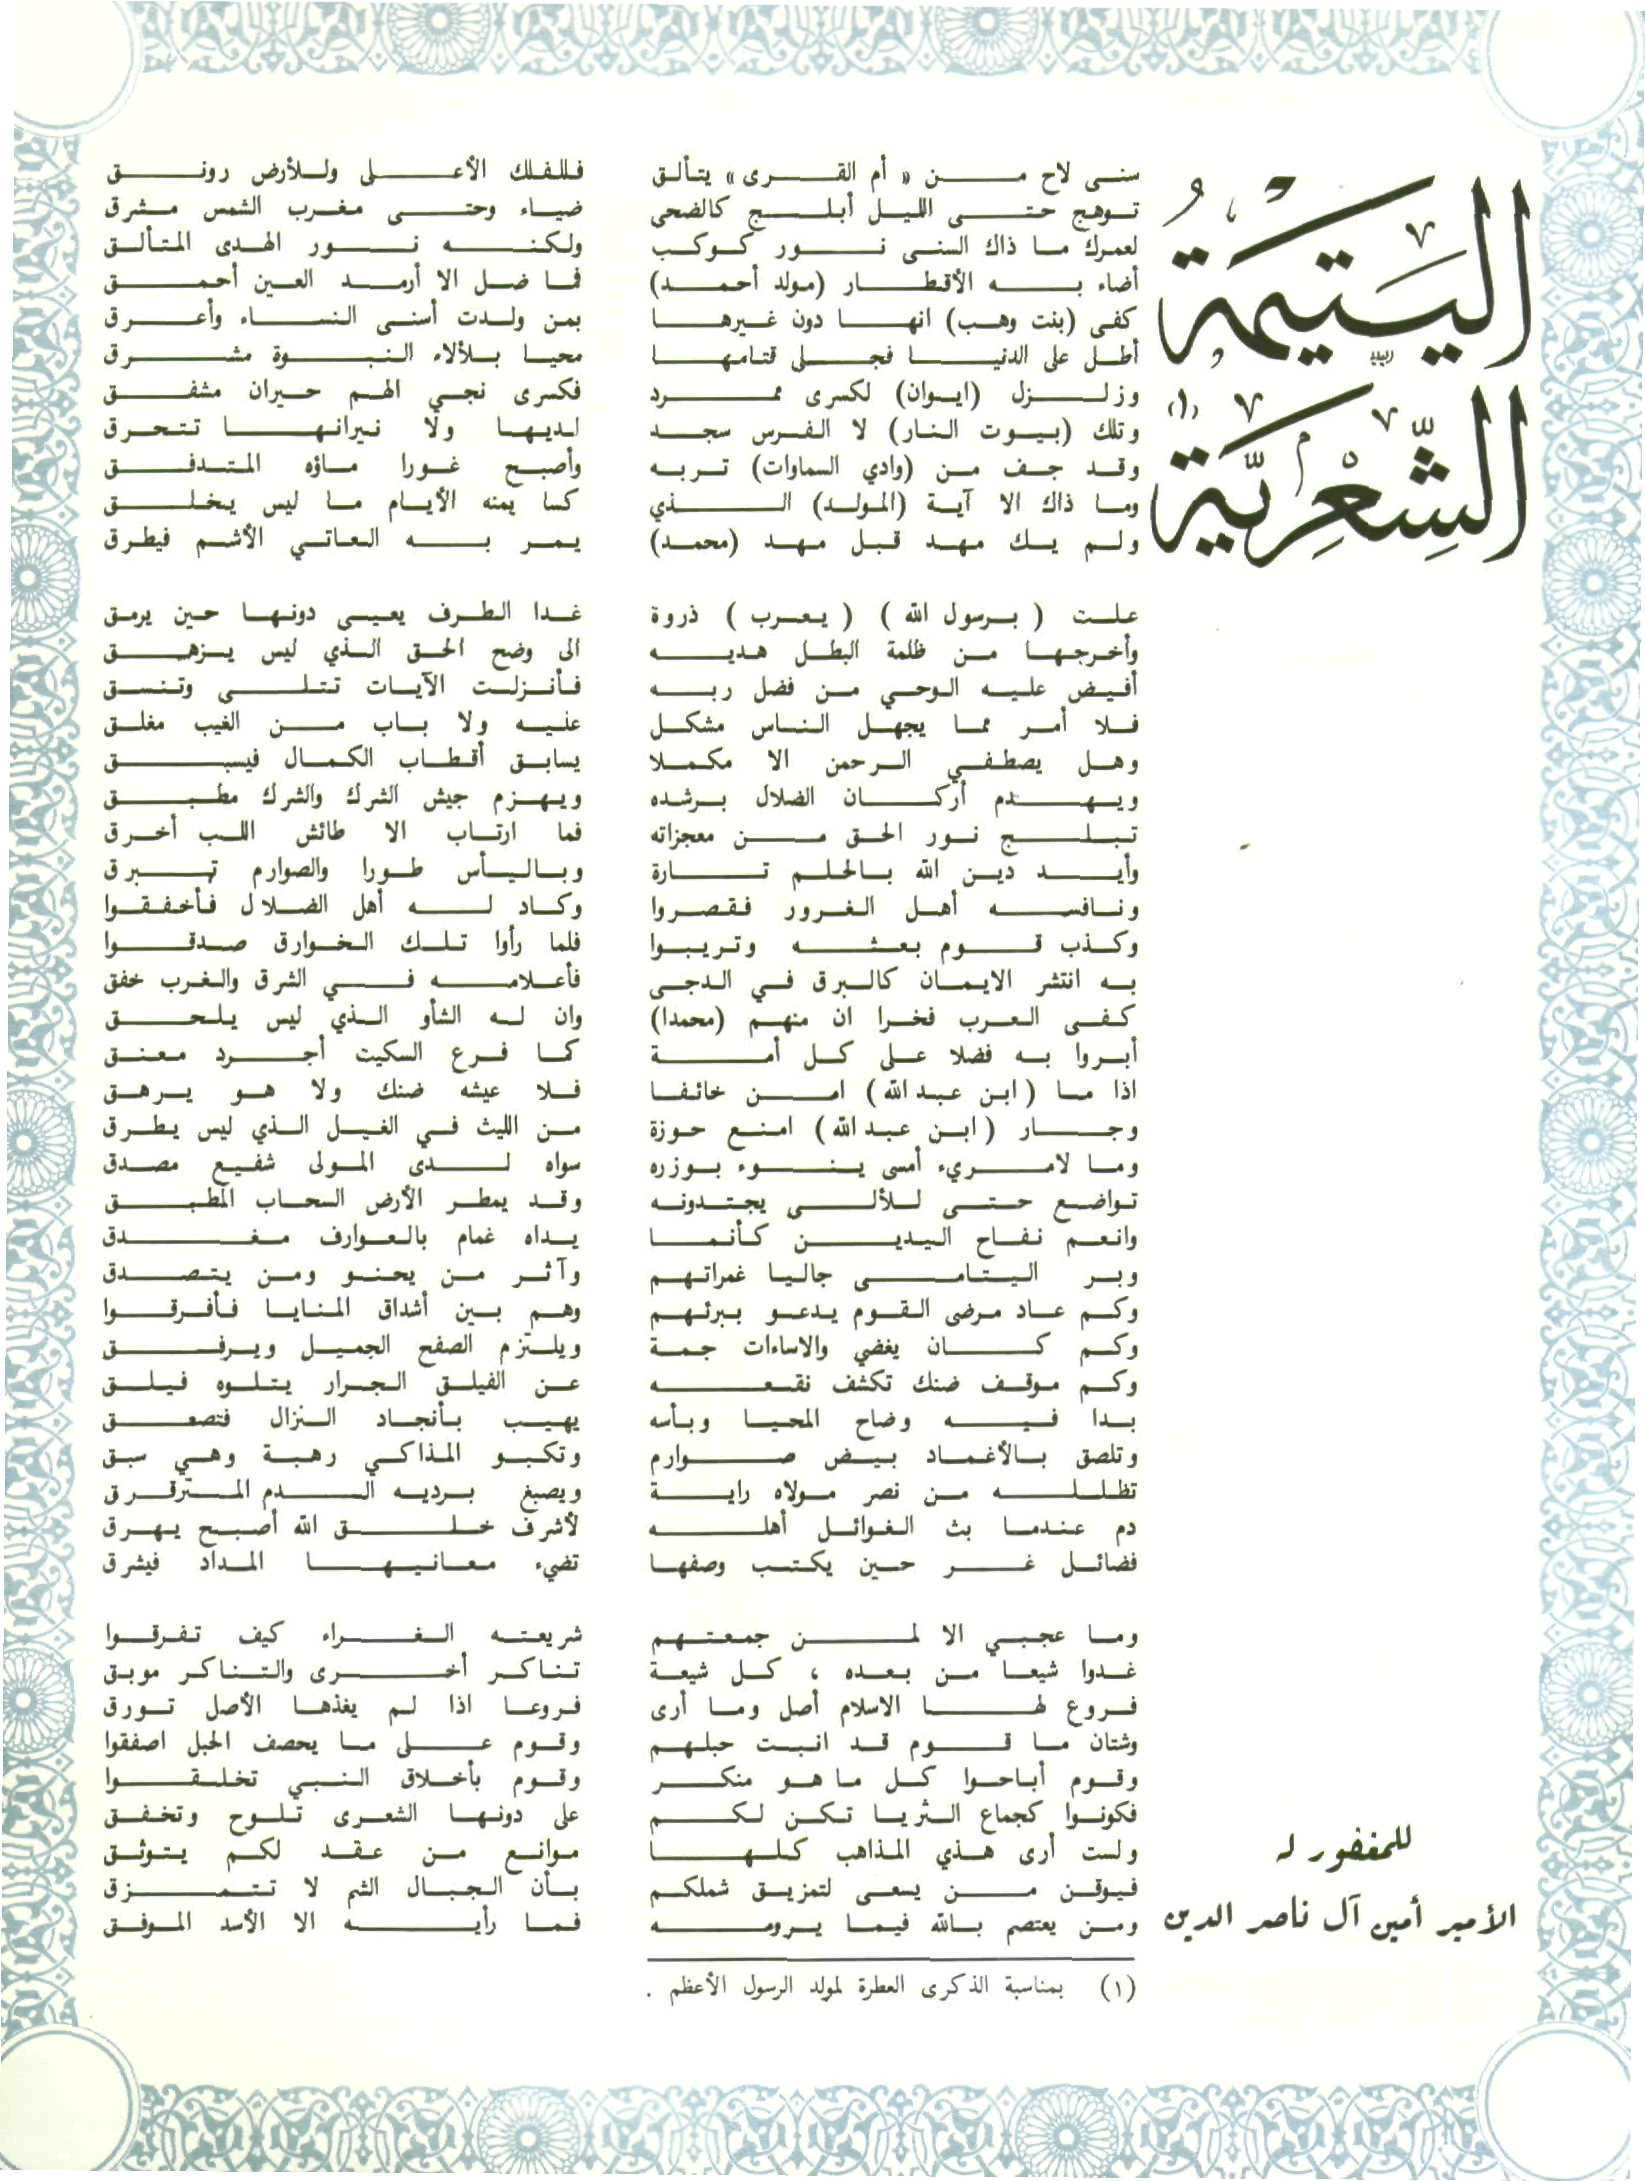 اليتيمة
الشعرية (١)
سنى لاح من « أم القرى » يتألق فللفلك الأعلى وللأرض رونق
توهج حتى الليل أبلج كالضحى ضياء وحتى مغرب الشمس مشرق
لعمرك ما ذاك السنى نور كوكب ولكنه نور الهدى المتألق
أضاء به الأقطار (مولد أحمد) فما ضل الا أرمد العين أحمق
كفى (بنت وهب) انها دون غيرها بمن ولدت أسنى النساء وأعرق
أطل على الدنيا فجلى قتامها محيا بلألاء النبوة مشرق
وزلزل (ايوان) لكسرى ممرد فكسرى نجي الهم حيران مشفق
وتلك (بيوت النار) لا الفرس سجد لديها ولا نيرانها تتحرق
وقد جف من (وادي السماوات) تربه وأصبح غورا ماؤه المتدفق
وما ذاك الا آية (المولد) الذي كسا يمنه الأيام ما ليس يخلق
ولم يك مهد قبل مهد (محمد) يمر به العاتي الأشم فيطرق
علت ( برسول الله ) ( يعرب ) ذروة غدا الطرف يعيى دونها حين يرمق
وأخرجها من ظلمة البطل هديه الى وضح الحق الذي ليس يزهق
أفيض عليه الوحي من فضل ربه فأنزلت الآيات تتلى وتنسق
فلا أمر مما يجهل الناس مشكل عليه ولا باب من الغيب مغلق
وهل يصطفي الرحمن الا مكملا يسابق أقطاب الكمال فيسبق
ويهدم أركان الضلال برشده ويهزم جيش الشرك والشرك مطبق
تبلج نور الحق من معجزاته فما ارتاب الا طائش اللب أخرق
وأيد دين الله بالحلم تارة وباليأس طورا والصوارم تبرق
ونافسه أهل الغرور فقصروا وكاد له أهل الضلال فأخفقوا
وكذب قوم بعثه وتريبوا فلما رأوا تلك الخوارق صدقوا
به انتشر الايمان كالبرق في الدجى فأعلامه في الشرق والغرب خفق
كفى العرب فخرا ان منهم (محمدا) وان له الشأو الذي ليس يلحق
أبروا به فضلا على كل أمة كما فرع السكيت أجرد معنق
اذا ما ( ابن عبد الله ) امن خائفا فلا عيشه ضنك ولا هو يرهق
وجار ( ابن عبد الله ) امنع حوزة من الليث في الغيل الذي ليس يطرق
وما لامريء أمسى ينوء بوزره سواه لدى المولى شفيع مصدق
تواضع حتى للألى يجتدونه وقد يمطر الأرض السحاب المطبق
وانعم نفاح اليدين كأنما يداه غمام بالعوارف مغدق
وبر اليتامى جاليا غمراتهم وآثر من يحنو ومن يتصدق
وكم عاد مرضى القوم يدعو ببرئهم وهم بين أشداق المنايا فأفرقوا
وكم كان يغضي والاساءات جمة ويلتزم الصفح الجميل ويرفق
وكم موقف ضنك تكشف نقعه عن الفيلق الجرار يتلوه فيلق
بدا فيه وضاح المحيا وبأسه يهيب بأنجاد النزال فتصعق
وتلصق بالأغماد بيض صوارم وتكبو المذاكي رهبة وهي سبق
تظلله من نصر مولاه راية ويصبغ برديه الدم المترقرق
دم عندما بث الغوائل أهله لأشرف خلق الله أصبح يهرق
فضائل غر حين يكتب وصفها تضيء معانيها المداد فيشرق
وما عجبي الا لمن جمعتهم شريعته الغراء كيف تفرقوا
غدوا شيعا من بعده ، كل شيعة تناكر أخرى والتناكر موبق
فروع لها الاسلام أصل وما أرى فروعا اذا لم يغذها الأصل تورق
وشتان ما قوم قد انبت حبلهم وقوم على ما يحصف الحبل اصفقوا
وقوم أباحوا كل ما هو منكر وقوم بأخلاق النبي تخلقوا
فكونوا كجماع الثريا تكن لكم على دونها الشعرى تلوح وتخفق
ولست أرى هذي المذاهب كلها موانع من عقد لكم يتوثق
فيوقن من يسعى لتمزيق شملكم بأن الجبال الشم لا تتمزق
ومن يعتصم بالله فيما يرومه فما رأيه الا الأسد الموفق
للمغفور له
الأمير أمين آل ناصر الدين
(١) بمناسبة الذكرى العطرة لمولد الرسول الأعظم .